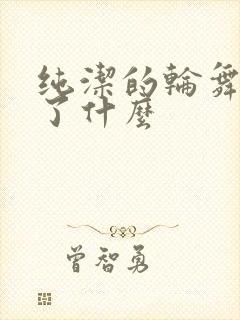 纯潔的輪舞
了什麼
曾智勇